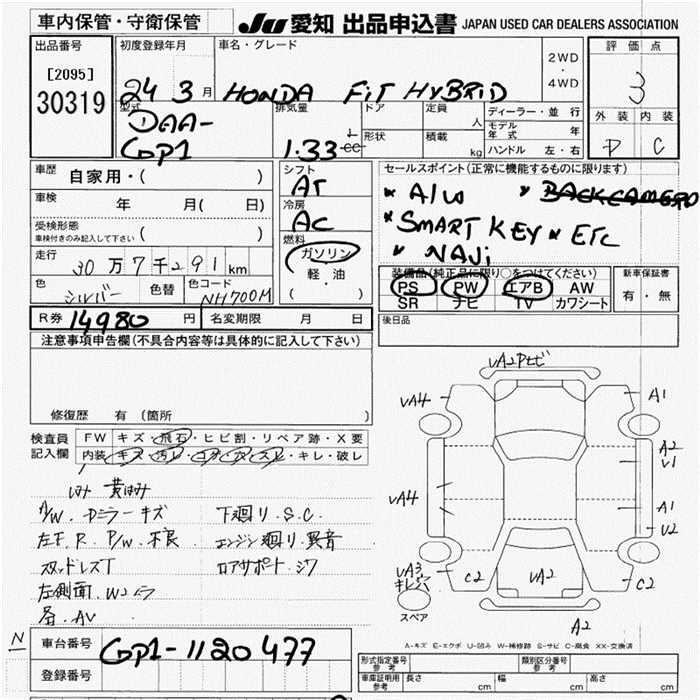 車内保管・守衛保管
JU 愛知 出品申込書 JAPAN USED CAR DEALERS ASSOCIATION
出品番号
[2095]
30319
初度登録年月
24 3 月
車名・グレード
HONDA FiT HYBRiD
2WD
・
4WD
評価点
3
外装 内装
D C
型式
DAA-
GP1
排気量
1.33 cc
ドア
形状
定員
人
積載
kg
ディーラー・並行
モデル年式 年
ハンドル 左・右
車歴
自家用・( )
車検
年 月( 日)
受検形態
車検付きのみ記入して下さい ( )
走行
30 万 7 千 291 km
色
シルバー
色替
色コード
NH700M
シフト
AT
冷房
AC
燃料
ガソリン
軽・油
( )
セールスポイント(正常に機能するものに限ります)
* A/W * BACKCAMERO
* SMART KEY * ETC
* NAVi
装備品(純正品に限り○をつけてください)
PS PW エアB AW
SR ナビ TV カワシート
新車保証書
有・無
R券 14980 円
名変期限 月 日
後日品
注意事項申告欄(不具合内容等は具体的に記入して下さい)
修復歴 有(箇所 )
検査員
記入欄
FW キズ・飛石・ヒビ割・リペア跡・X要
内装 キズ・汚レ・コゲ・穴・スレ・キレ・破レ
A/W. Dミラーキズ
下廻り.S.C.
左F.R.P/W.不良
エンジン廻り.異音
スタッドレスT
左側面.W2ムラ
各.AV
VA2Pセビ
VA4
A1
A2
V1
VA4
A1
U2
VA3
キレツ
C2
VA2
C2
A2
スペア
A-キズ E-エクボ U-凹み W-補修跡 S-サビ C-腐食 XX-交換済
N
車台番号
GP1-1120477
登録番号
形式指定番号
参考
類別区分番号
参考
車庫証明用
参考
長さ cm
幅 cm
高さ cm